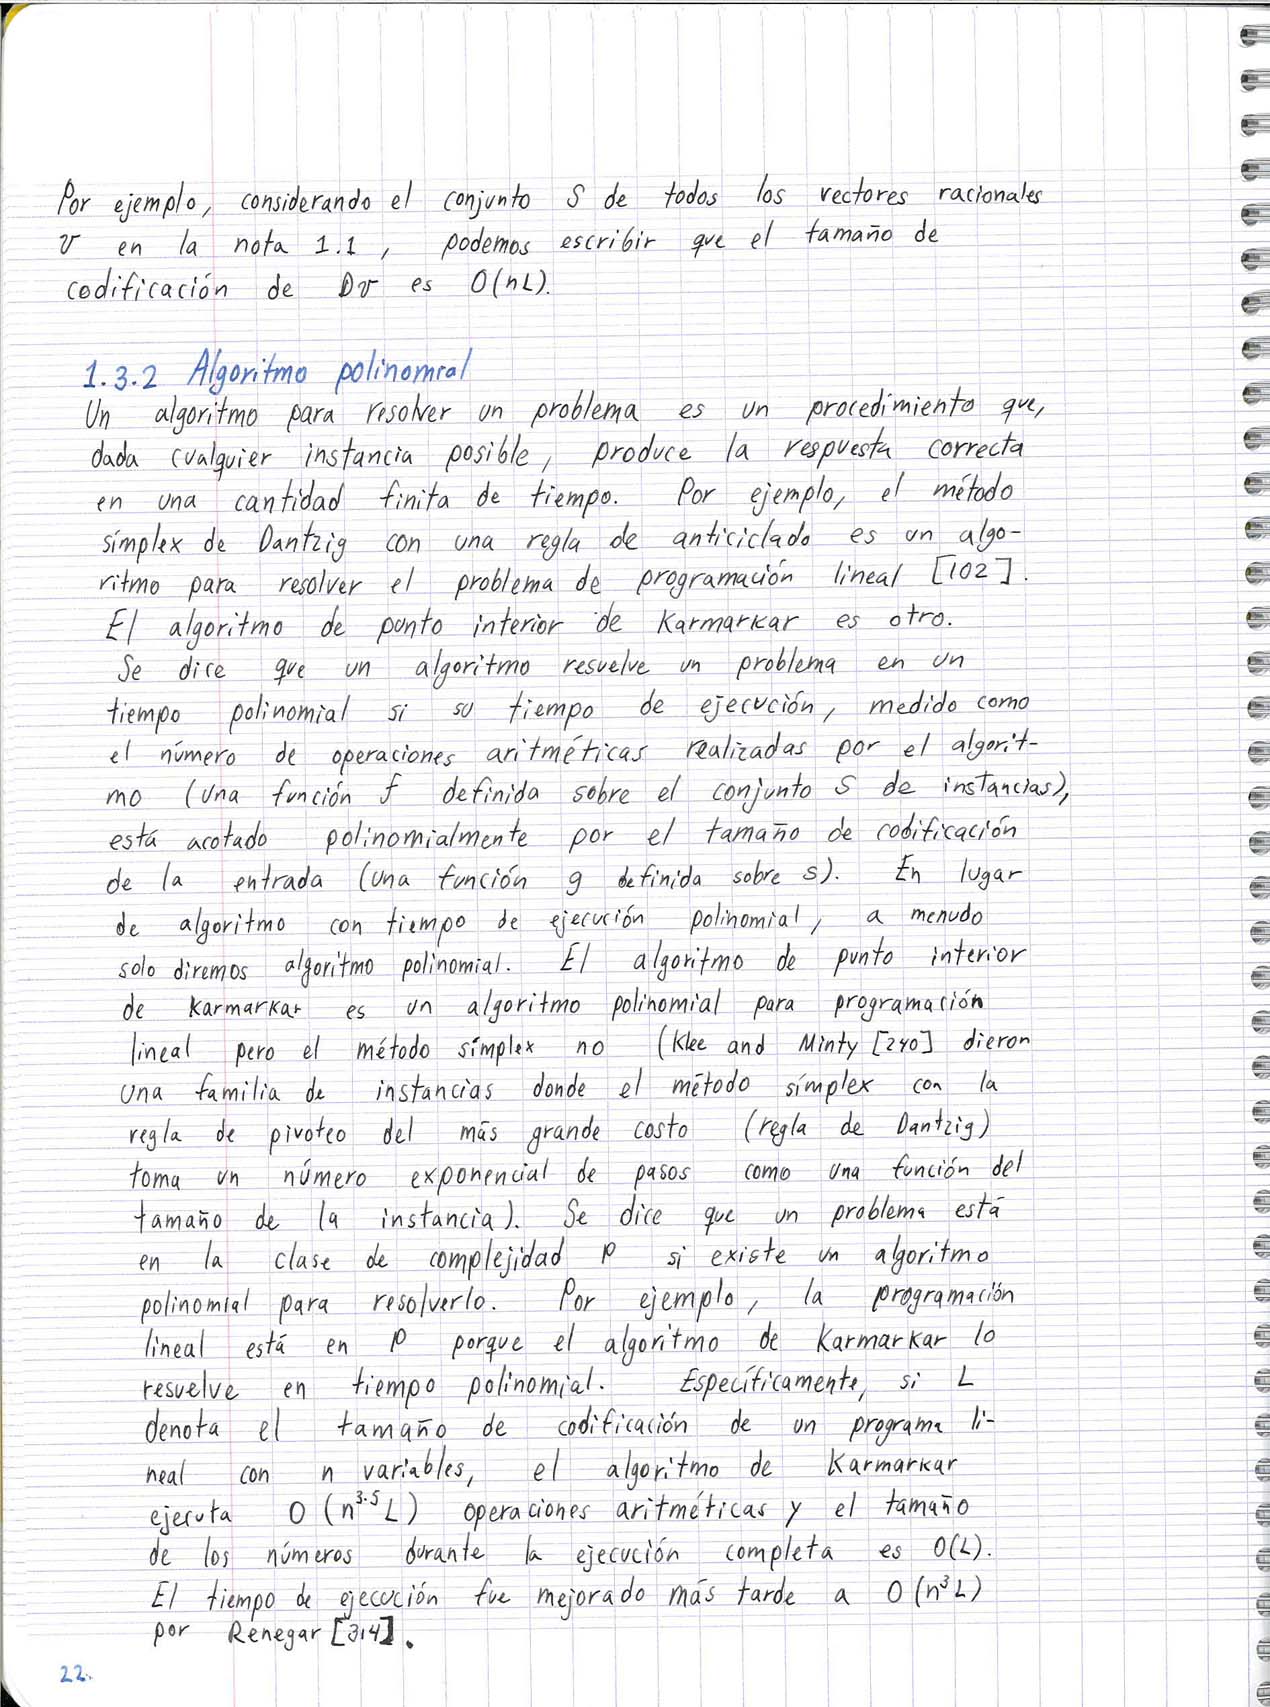 Por ejemplo, considerando el conjunto S de todos los vectores racionales
v en la nota 1.1, podemos escribir que el tamaño de
codificación de Dv es O(nL).
1.3.2 Algoritmo polinomial
Un algoritmo para resolver un problema es un procedimiento que,
dada cualquier instancia posible, produce la respuesta correcta
en una cantidad finita de tiempo. Por ejemplo, el método
símplex de Dantzig con una regla de anticiclado es un algo-
ritmo para resolver el problema de programación lineal [102].
El algoritmo de punto interior de Karmarkar es otro.
Se dice que un algoritmo resuelve un problema en un
tiempo polinomial si su tiempo de ejecución, medido como
el número de operaciones aritméticas realizadas por el algorit-
mo (una función f definida sobre el conjunto S de instancias),
está acotado polinomialmente por el tamaño de codificación
de la entrada (una función g definida sobre S). En lugar
de algoritmo con tiempo de ejecución polinomial, a menudo
solo diremos algoritmo polinomial. El algoritmo de punto interior
de Karmarkar es un algoritmo polinomial para programación
lineal pero el método símplex no (Klee and Minty [240] dieron
una familia de instancias donde el método símplex con la
regla de pivoteo del más grande costo (regla de Dantzig)
toma un número exponencial de pasos como una función del
tamaño de la instancia). Se dice que un problema está
en la clase de complejidad P si existe un algoritmo
polinomial para resolverlo. Por ejemplo, la programación
lineal está en P porque el algoritmo de Karmarkar lo
resuelve en tiempo polinomial. Específicamente, si L
denota el tamaño de codificación de un programa li-
neal con n variables, el algoritmo de Karmarkar
ejecuta O(n^3.5 L) operaciones aritméticas y el tamaño
de los números durante la ejecución completa es O(L).
El tiempo de ejecución fue mejorado más tarde a O(n³L)
por Renegar [314].
22.